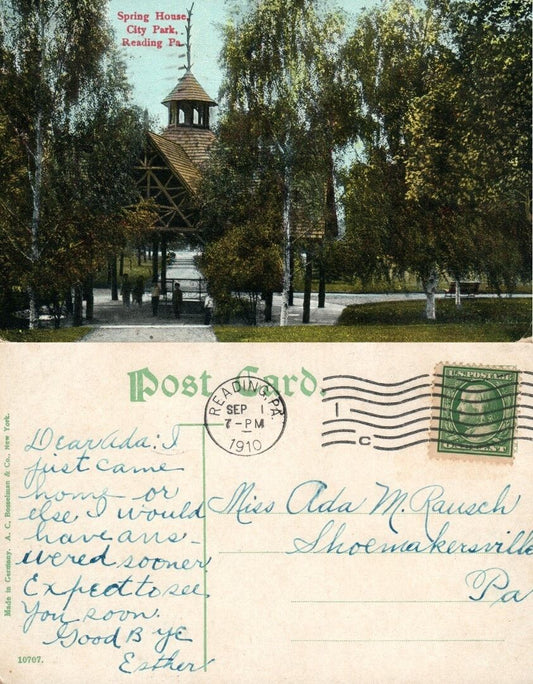 Spring House,
City Park,
Reading Pa.
Post Card.
READING, PA.
SEP 1
7-PM
1910
1
C
U.S. POSTAGE
Dear Ada: I
just came
home or
else I would
have ans-
wered sooner
Expect to see
You soon.
Good B ye
Esther
Miss Ada M. Rausch
Shoemakersville
Pa
Made in Germany. A. C. Bosselman & Co., New York.
10707.